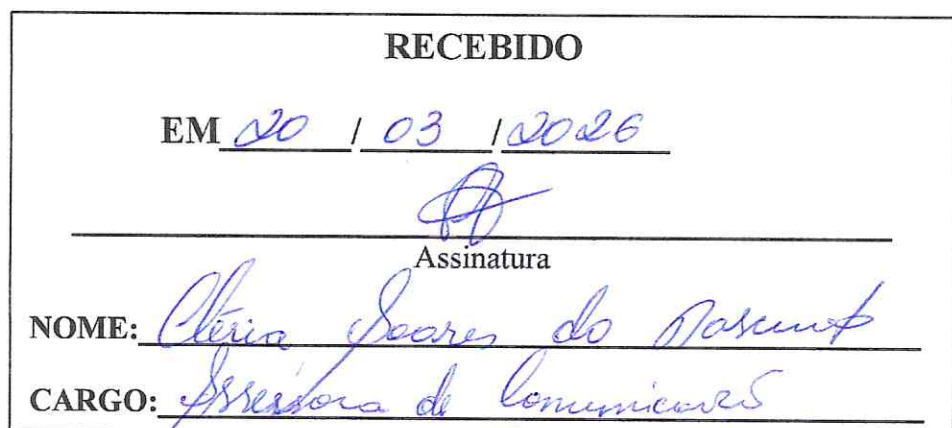 RECEBIDO
EM 20 / 03 / 2026
Assinatura
NOME: Soares do Nascimento
CARGO: Assessora de Comunicação